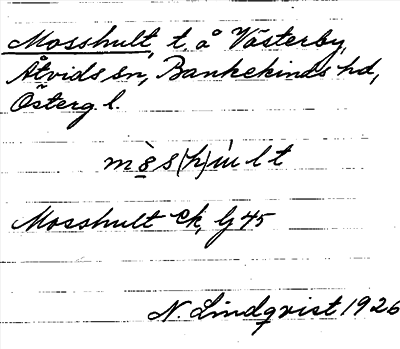 Mosshult, t. å Västerby,
Åtvids sn, Bankekinds hd,
Österg. l.
Mosshult Ek, lj 45
N. Lindqvist 1926